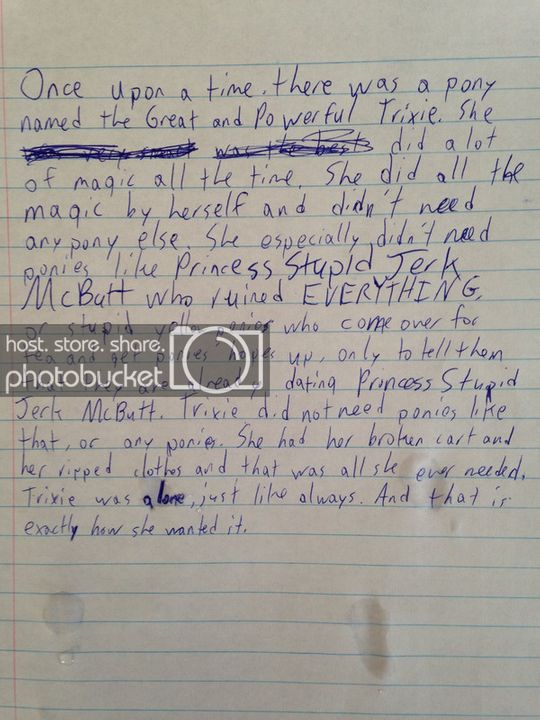 Once upon a time, there was a pony
named the Great and Powerful Trixie. She
did a lot
of magic all the time. She did all the
magic by herself and didn't need
anypony else. She especially didn't need
ponies like Princess Stupid Jerk
McButt who ruined EVERYTHING,
or stupid ponies who come over for
tea and get ponies hopes up, only to tell them
that they are already dating Princess Stupid
Jerk McButt. Trixie did not need ponies like
that, or any ponies. She had her broken cart and
her ripped clothes and that was all she ever needed.
Trixie was alone, just like always. And that is
exactly how she wanted it.
host. store. share.
photobucket